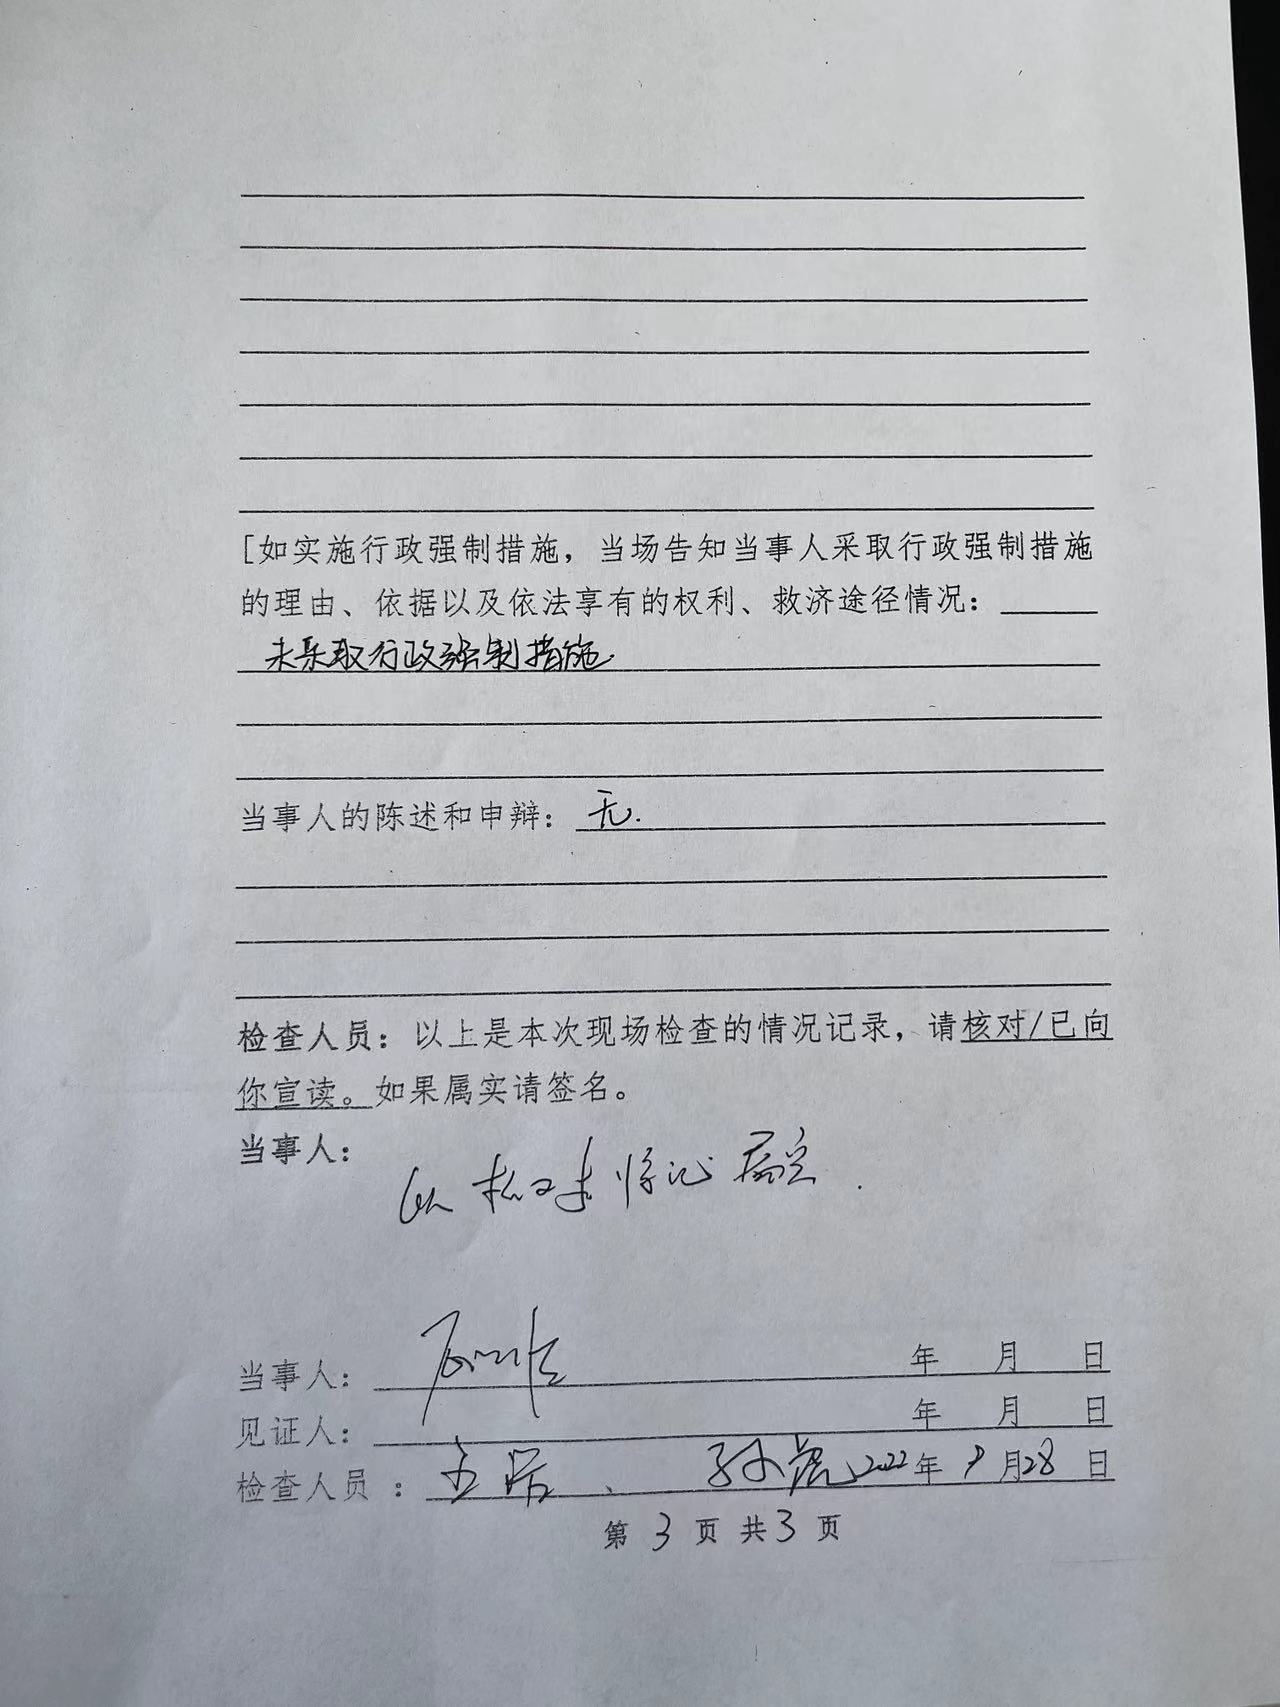 [如实施行政强制措施，当场告知当事人采取行政强制措施
的理由、依据以及依法享有的权利、救济途径情况：
未采取行政强制措施.
当事人的陈述和申辩：无.
检查人员：以上是本次现场检查的情况记录，请核对/已向
你宣读。如果属实请签名。
当事人：
属实.
当事人： 年 月 日
见证人： 年 月 日
检查人员：、孙虎 2022年9月28日
第3页共3页